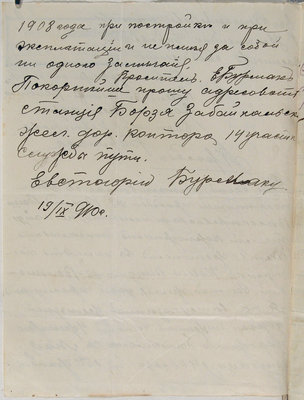 1908 года при постройки и при
эксплатаціи и не имея за собой
ни одного
Проситель Е Бурмакъ
Покорнейше прошу адресовать
станція Борзя Забайкальск
жел. дор. контора 14 участк
службы пути.
Евстафию Бурмаку
19/IX 910 г.